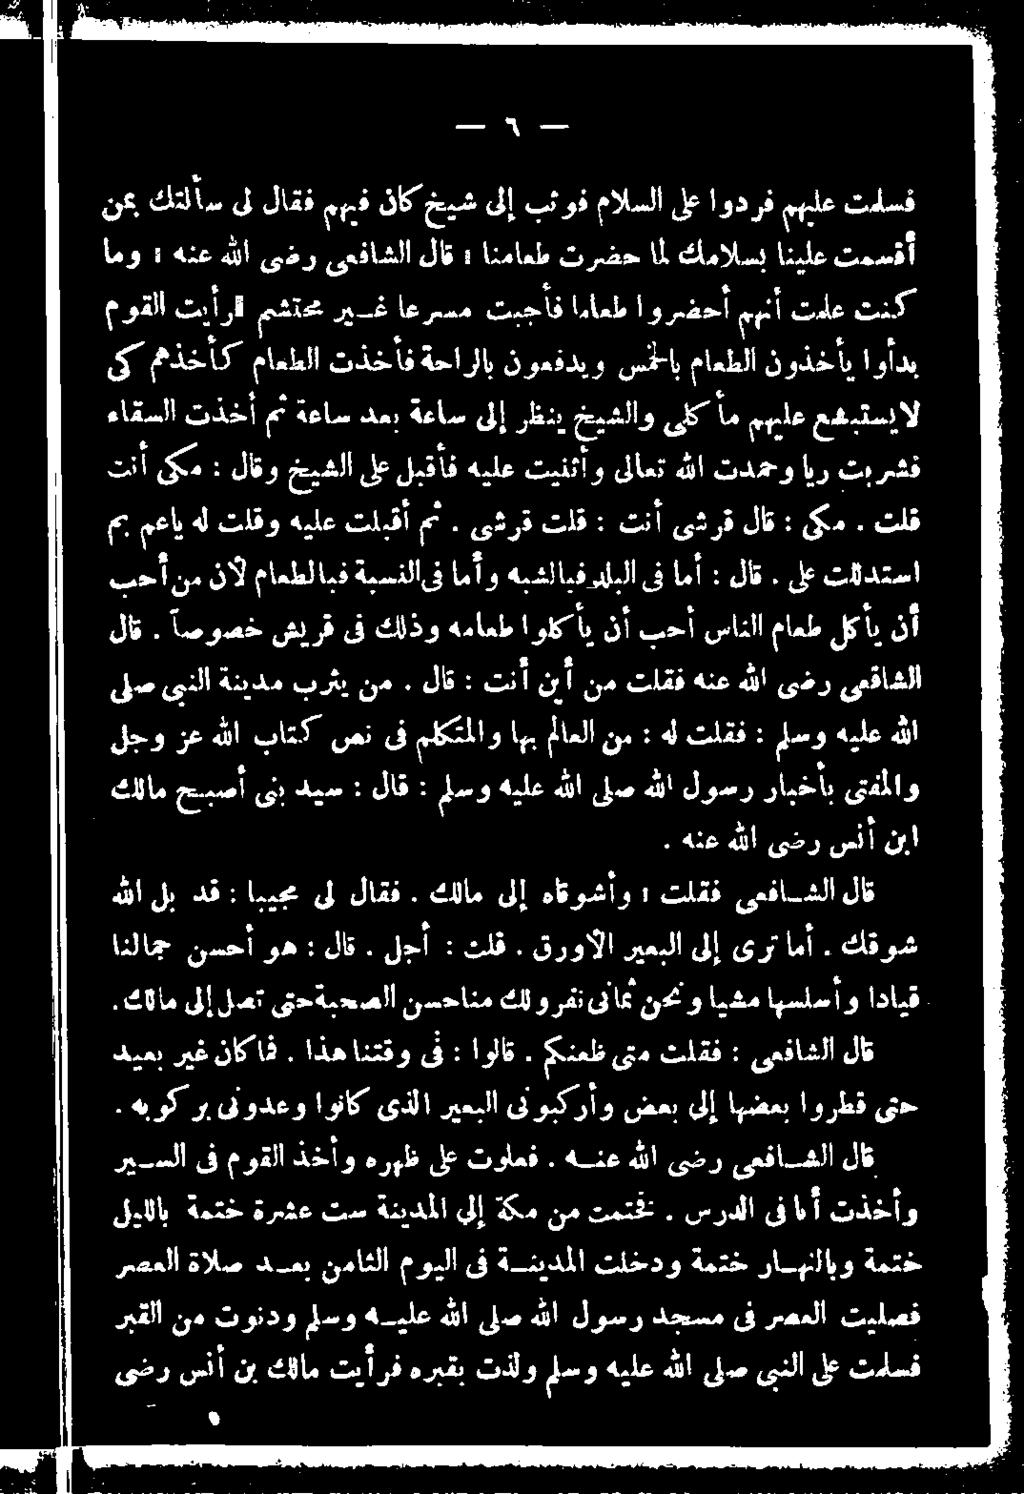 — ٦ —
فسلمت عليهم فردوا على السلام فوثب إلى شيخ كان فيهم فقال لى سألتك بمن
أقسمت علينا بسلامك الا حضرت طعامنا : قال الشافعى رضى الله عنه : وما
كنت علمت أنهم أحضروا طعاما فأجبت مسرعا غــير محتشم فرأيت القوم
بدأوا يأخذون الطعام بالخمس ويدفعون بالراحة فأخذت الطعام كأخذهم كى
لا يستبشع عليهم مأكلى والشيخ ينظر إلى ساعة بعد ساعة ثم أخذت السقاء
فشربت ريا وحمدت الله تعالى وأثنيت عليه فأقبل على الشيخ وقال : مكى أنت
قلت . مكى : قال قرشى أنت : قلت قرشى . ثم أقبلت عليه وقلت له ياعم بم
استدللت على . قال : أما فى البلد فبالشبه وأما فى النسبة فبالطعام لأن من أحب
أن يأكل طعام الناس أحب أن يأكلوا طعامه وذلك فى قريش خصوصاً . قال
الشافعى رضى الله عنه فقلت من أين أنت : قال . من يثرب مدينة النبى صلى
الله عليه وسلم : فقلت له : من العالم بها والمتكلم فى نص كتاب الله عز وجل
والمفتى بأخبار رسول الله صلى الله عليه وسلم : قال : سيد بنى أصبح مالك
ابن أنس رضى الله عنه .
قال الشــافعى فقلت : واشوقاه إلى مالك . فقال لى مجيبا : قد بل الله
شوقك . أما ترى إلى البعير الأورق . قلت : أجل . قال : هو أحسن جمالنا
قيادا وأسلسها مشيا ونحن ثمانى نفر ولك منا حسن الصحبة حتى تصل إلى مالك .
قال الشافعى : فقلت متى ظعنكم . قالوا : فى وقتنا هذا . فما كان غير بعيد
حتى قطروا بعضها إلى بعض وأركبونى البعير الذى كانوا وعدونى بركوبه .
قال الشــافعى رضى الله عــنه . فعلوت على ظهره وأخذ القوم فى الســير
وأخذت أنا فى الدرس . فختمت من مكة إلى المدينة ست عشرة ختمة بالليل
ختمة وبالنهــار ختمة ودخلت المدينــة فى اليوم الثامن بعــد صلاة العصر
فصليت العصر فى مسجد رسول الله صلى الله عليــه وسلم ودنوت من القبر
فسلمت على النبى صلى الله عليه وسلم ولذت بقبره فرأيت مالك بن أنس رضى